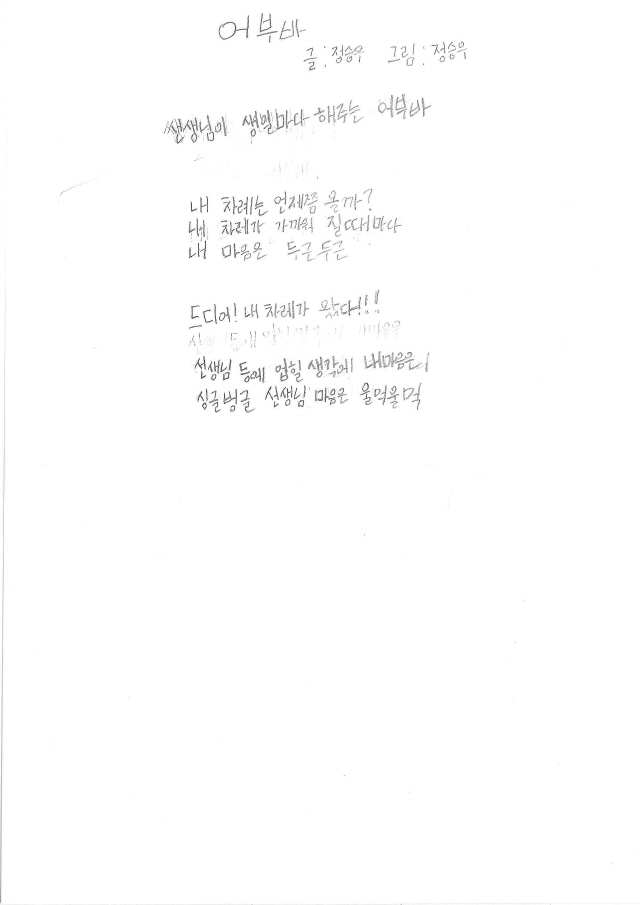 어부바
글:정승우 그림:정승우
쌘생님이 생일마다 해주는 어부바
내 차례는 언제쯤 올까?
내 차례가 가까워 질때마다
내 마음은 두근두근
드디어! 내 차례가 왔다!!!
선생님 등에 업힐 생각에 내마음은
싱글벙글 선생님 마음은 울먹울먹